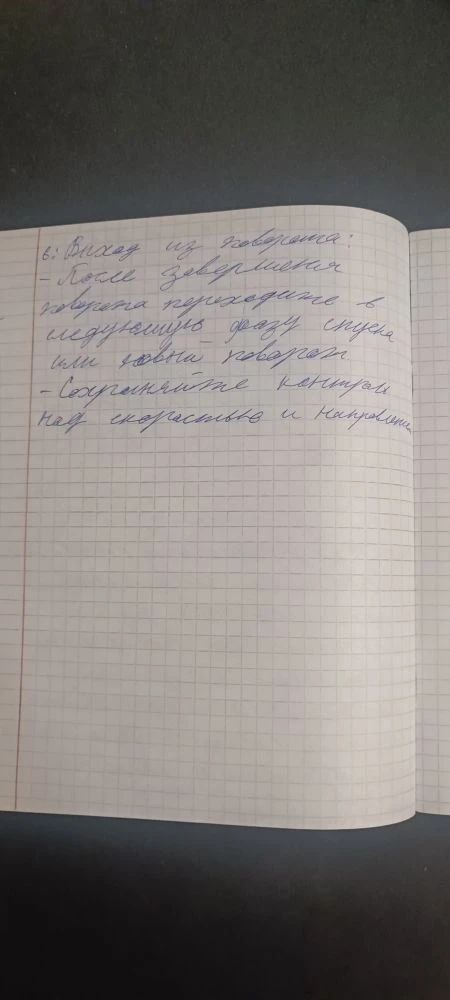 6: Выход из поворота:
- После завершеня
поворота переходите в
следующую фазу спуска
или новый поворот
- Сохраняйте контрол
над скорастью и направлением